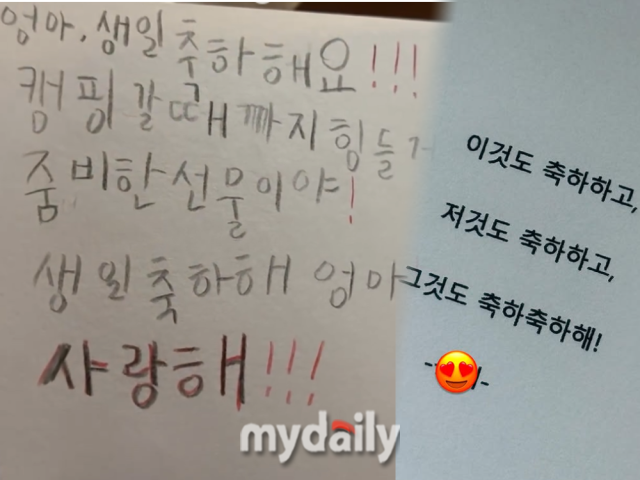 엄마, 생일 축하해요!!!
캠핑 갈 때까지 힘들
줌비한 선물이야!
생일 축하해 엄마
사랑해!!!
이것도 축하하고,
저것도 축하하고,
그것도 축하축하해!
mydaily